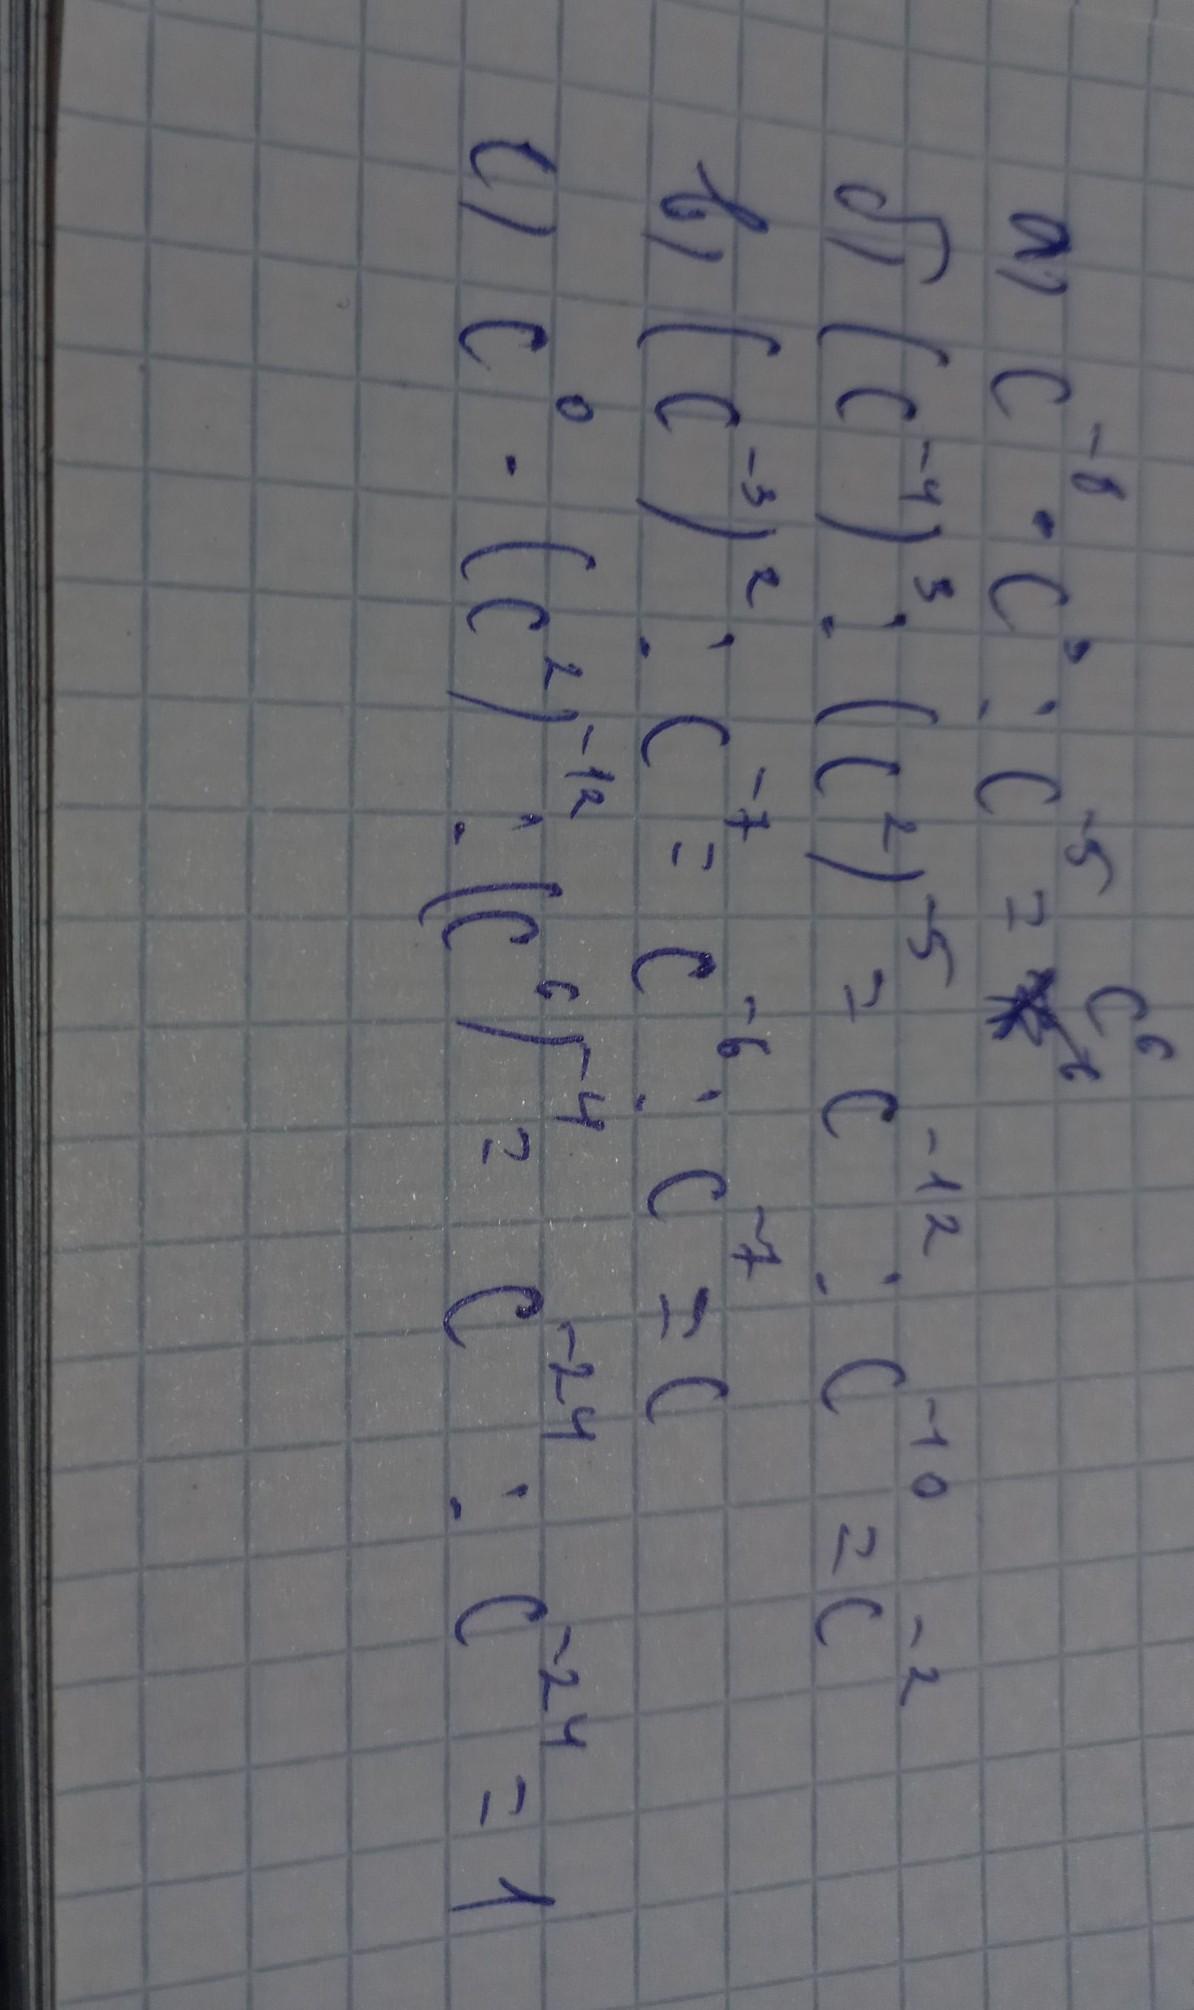 а) C⁻⁸ · C⁹ : C⁻⁵ = C⁶
б) (C⁻⁴)³ : (C²)⁻⁵ = C⁻¹² : C⁻¹⁰ = C⁻²
в) (C⁻³)² : C⁻⁷ = C⁻⁶ : C⁻⁷ = C
г) C⁰ · (C²)⁻¹² : (C⁶)⁻⁴ = C⁻²⁴ : C⁻²⁴ = 1